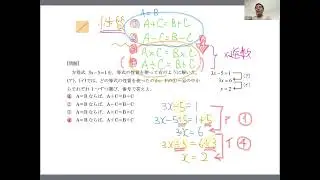 A=B
① A+C=B+C
② A-C=B-C
③ A×C=B×C
④ A÷C=B÷C
×逆数
【問題】
方程式 3x-5=1 を、等式の性質を使って右のように解いた。
(ア)、(イ)では、どの等式の性質を使ったのか、下の①~④の中か
らそれぞれ1つずつ選び、番号で答えよ。
3x-5=1
3x=6
x=2
① A=B ならば、A+C=B+C
② A=B ならば、A-C=B-C
③ A=B ならば、A×C=B×C
④ A=B ならば、A÷C=B÷C
3x-5=1
3x-5+5=1+5
3x=6
ア ①
3x÷3=6÷3
イ ④
x=2